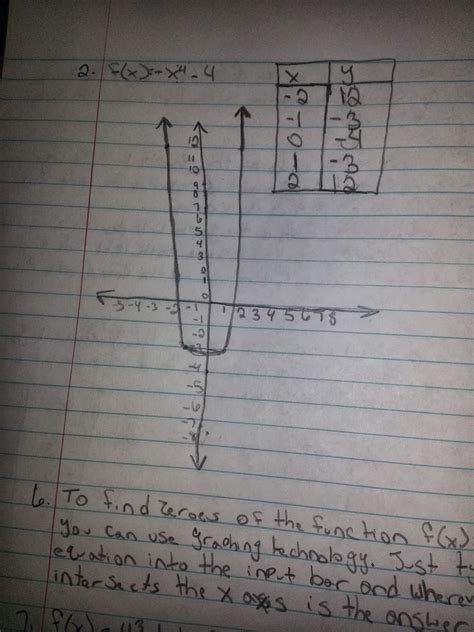 2. f(x)=-x⁴-4
x y
-2 12
-1 -3
0 -4
1 -3
2 12
12
11
10
9
8
7
6
5
4
3
0
-5 -4 -3 -2 -1 1 2 3 4 5 6 7 8
-1
-2
-3
-4
-5
-6
-7
-8
6. To find zeroes of the function f(x)
you can use graphing technology. Just
equation into the input bar and wherev
intersects the x axis is the answer
7. f(x)